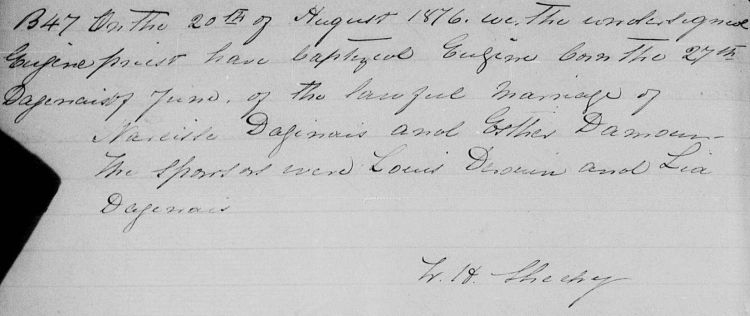 B47 On the 20th of August 1876. we. the undersigned
Eugène priest have baptized Eugène born the 27th
Dagenais of June. of the lawful marriage of
Narcisse Daginais and Esther Damour
The sponsors were Louis Derouin and Lia
Dagenais
W. H. Sheehy